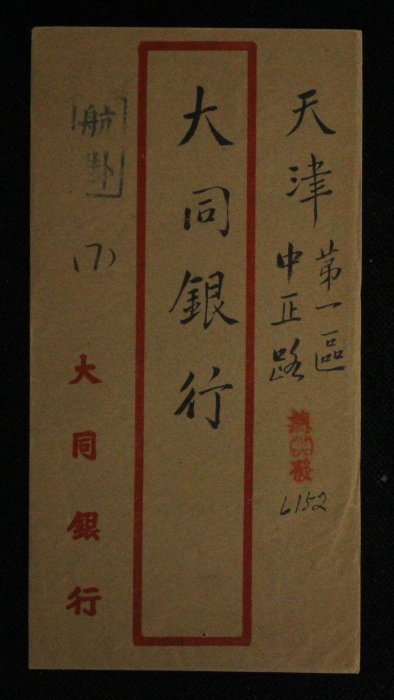 天津
第一區
中正路
6152
大同銀行
航
(7)
大同銀行